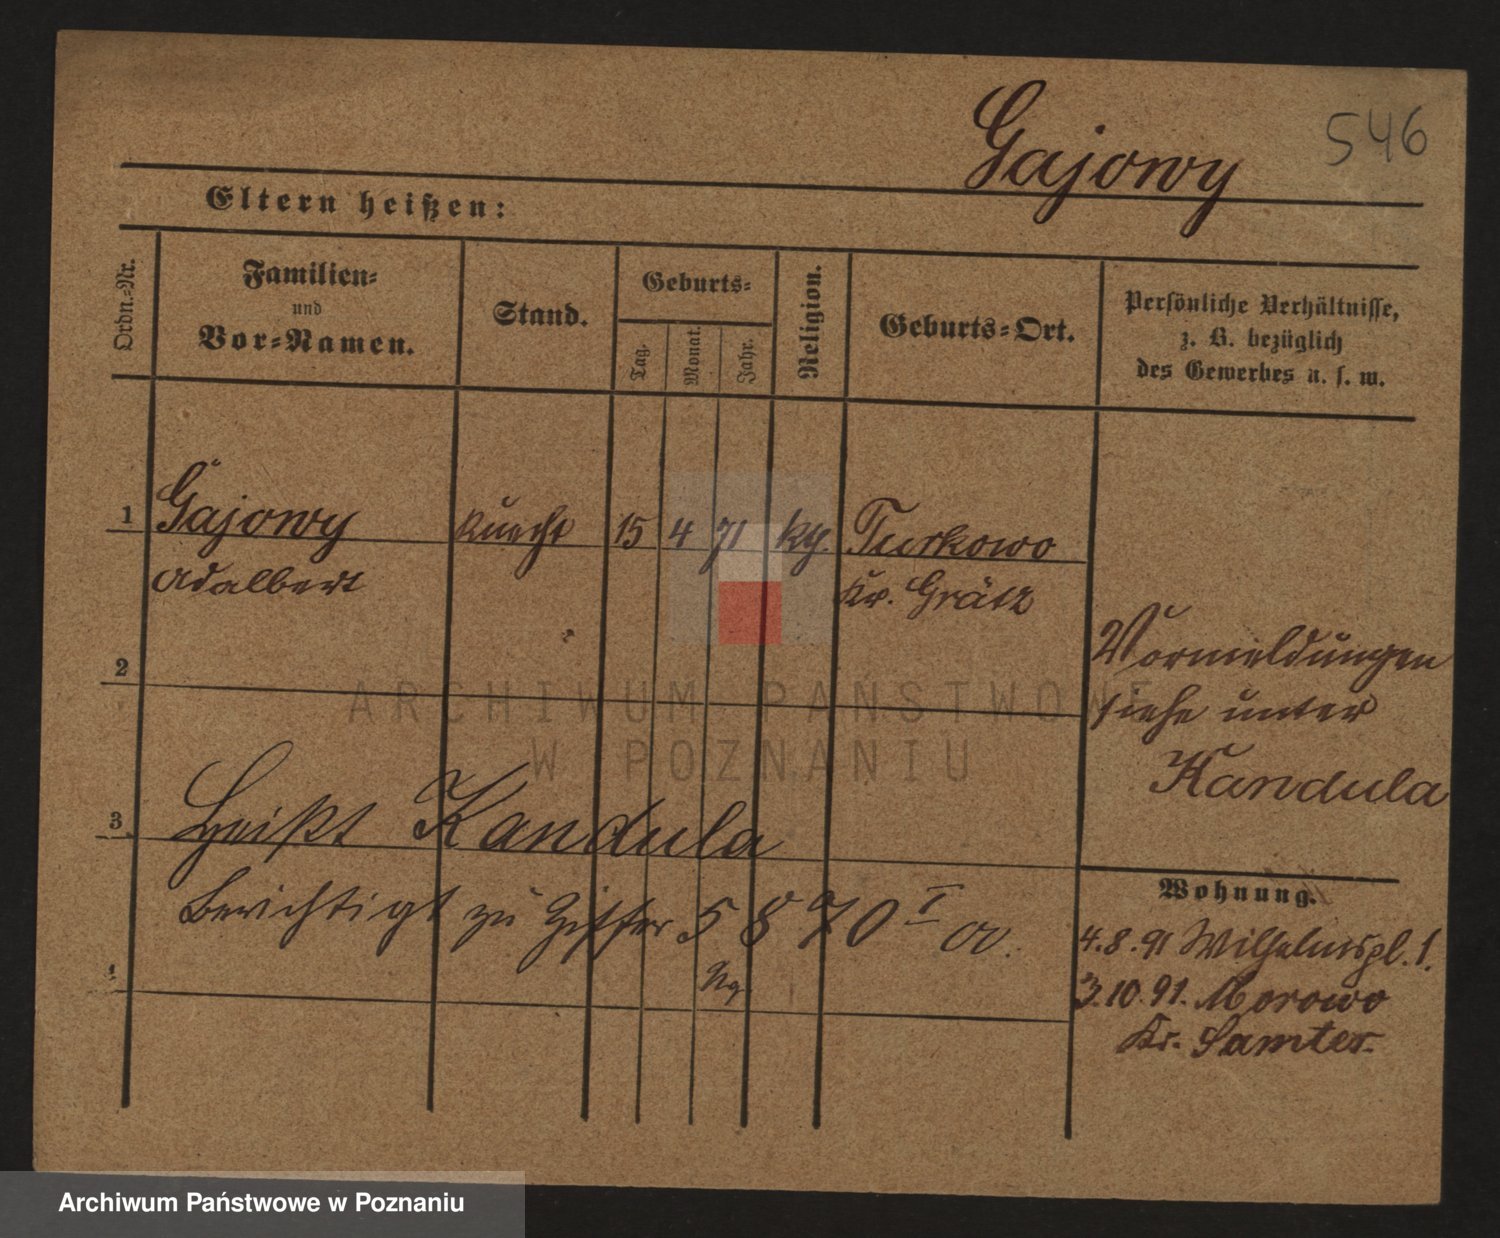 Gajowy
546
Eltern heißen:
Ordn.-Nr.
Familien-
und
Vor-Namen.
Stand.
Geburts-
Tag.
Monat.
Jahr.
Religion.
Geburts-Ort.
Persönliche Verhältnisse,
z. B. bezüglich
des Gewerbes u. s. w.
1 Gajowy Knecht 15 4 71 Turkowo
Adalbert Kr. Grätz
2
Vormeldungen
siehe unter
Kandula
3 Heißt Kandula
Wohnung.
Berichtigt zu Ziffer 5 8 70 I
4.8.91 Wilhelmspl. 1.
3.10.91. Morowo
Kr. Samter.
4
ARCHIWUM PAŃSTWOWE
W POZNANIU
Archiwum Państwowe w Poznaniu